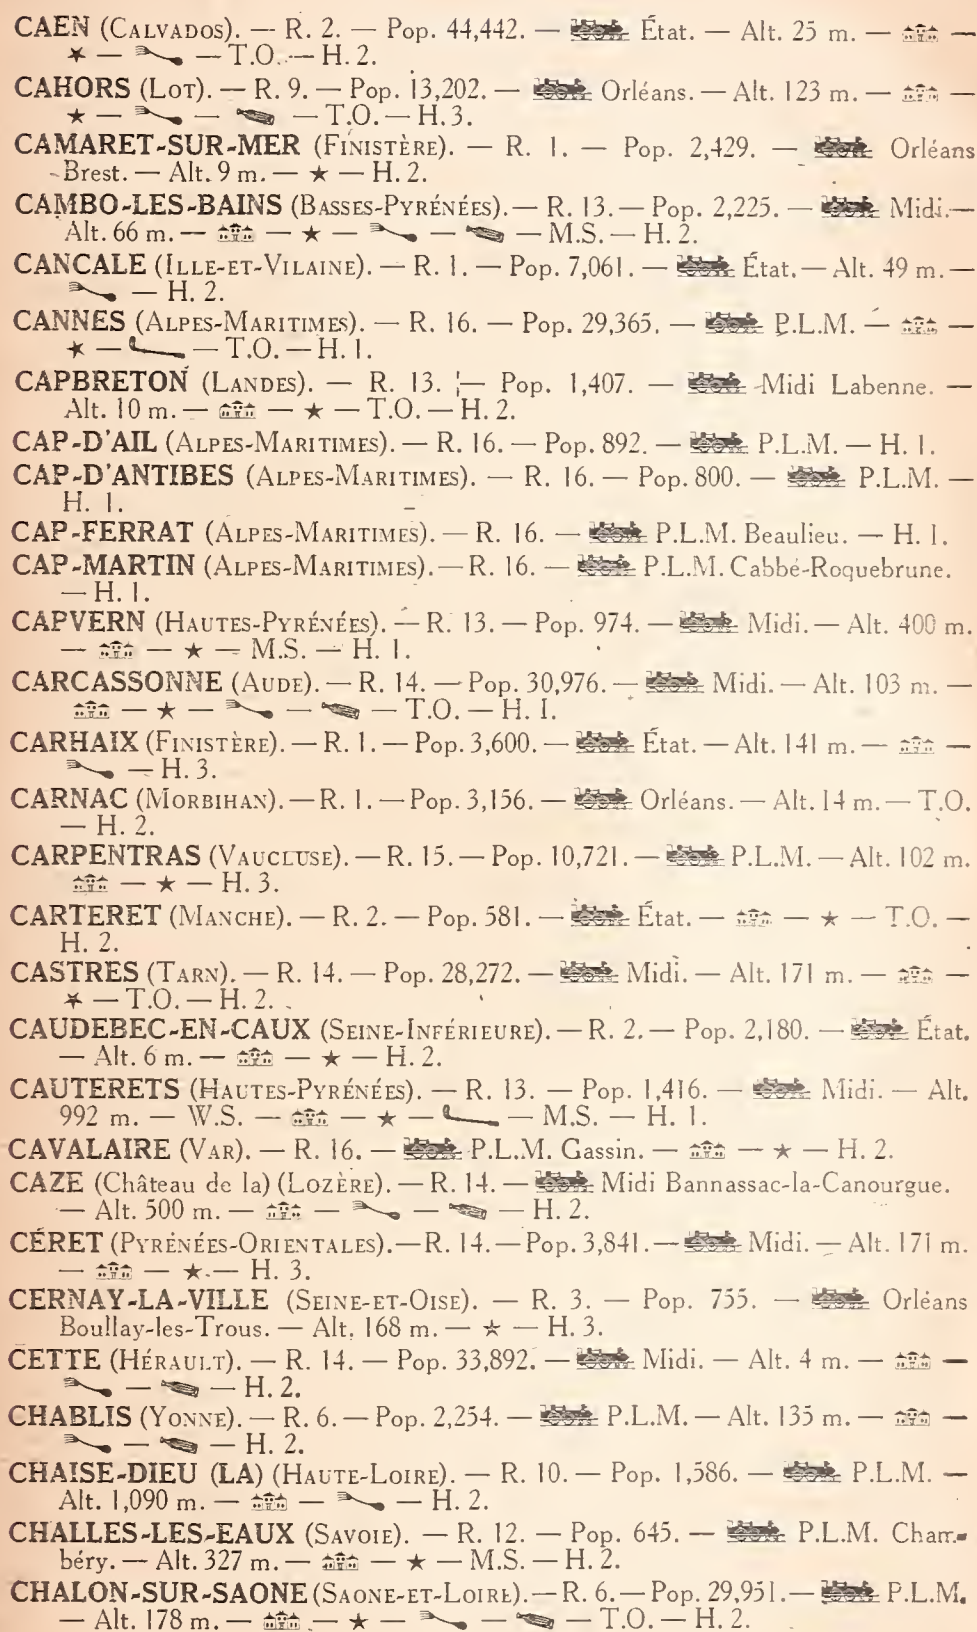 CAEN (CALVADOS). — R. 2. — Pop. 44,442. — État. — Alt. 25 m. — —
★ — — T.O. — H. 2.
CAHORS (LOT). — R. 9. — Pop. 13,202. — Orléans. — Alt. 123 m. — —
★ — — — T.O. — H. 3.
CAMARET-SUR-MER (FINISTÈRE). — R. 1. — Pop. 2,429. — Orléans
Brest. — Alt. 9 m. — ★ — H. 2.
CAMBO-LES-BAINS (BASSES-PYRÉNÉES). — R. 13. — Pop. 2,225. — Midi. —
Alt. 66 m. — — ★ — — — M.S. — H. 2.
CANCALE (ILLE-ET-VILAINE). — R. 1. — Pop. 7,061. — État. — Alt. 49 m. —
— H. 2.
CANNES (ALPES-MARITIMES). — R. 16. — Pop. 29,365. — P.L.M. — —
★ — — T.O. — H. 1.
CAPBRETON (LANDES). — R. 13. — Pop. 1,407. — Midi Labenne. —
Alt. 10 m. — — ★ — T.O. — H. 2.
CAP-D'AIL (ALPES-MARITIMES). — R. 16. — Pop. 892. — P.L.M. — H. 1.
CAP-D'ANTIBES (ALPES-MARITIMES). — R. 16. — Pop. 800. — P.L.M. —
H. 1.
CAP-FERRAT (ALPES-MARITIMES). — R. 16. — P.L.M. Beaulieu. — H. 1.
CAP-MARTIN (ALPES-MARITIMES). — R. 16. — P.L.M. Cabbé-Roquebrune.
— H. 1.
CAPVERN (HAUTES-PYRÉNÉES). — R. 13. — Pop. 974. — Midi. — Alt. 400 m.
— — ★ — M.S. — H. 1.
CARCASSONNE (AUDE). — R. 14. — Pop. 30,976. — Midi. — Alt. 103 m. —
— ★ — — — T.O. — H. 1.
CARHAIX (FINISTÈRE). — R. 1. — Pop. 3,600. — État. — Alt. 141 m. — —
— H. 3.
CARNAC (MORBIHAN). — R. 1. — Pop. 3,156. — Orléans. — Alt. 14 m. — T.O.
— H. 2.
CARPENTRAS (VAUCLUSE). — R. 15. — Pop. 10,721. — P.L.M. — Alt. 102 m.
— ★ — H. 3.
CARTERET (MANCHE). — R. 2. — Pop. 581. — État. — — ★ — T.O. —
H. 2.
CASTRES (TARN). — R. 14. — Pop. 28,272. — Midi. — Alt. 171 m. — —
★ — T.O. — H. 2.
CAUDEBEC-EN-CAUX (SEINE-INFÉRIEURE). — R. 2. — Pop. 2,180. — État.
— Alt. 6 m. — — ★ — H. 2.
CAUTERETS (HAUTES-PYRÉNÉES). — R. 13. — Pop. 1,416. — Midi. — Alt.
992 m. — W.S. — — ★ — — M.S. — H. 1.
CAVALAIRE (VAR). — R. 16. — P.L.M. Gassin. — — ★ — H. 2.
CAZE (Château de la) (LOZÈRE). — R. 14. — Midi Bannassac-la-Canourgue.
— Alt. 500 m. — — — — H. 2.
CÉRET (PYRÉNÉES-ORIENTALES). — R. 14. — Pop. 3,841. — Midi. — Alt. 171 m.
— — ★ — H. 3.
CERNAY-LA-VILLE (SEINE-ET-OISE). — R. 3. — Pop. 755. — Orléans
Boullay-les-Trous. — Alt. 168 m. — ★ — H. 3.
CETTE (HÉRAULT). — R. 14. — Pop. 33,892. — Midi. — Alt. 4 m. — —
— — H. 2.
CHABLIS (YONNE). — R. 6. — Pop. 2,254. — P.L.M. — Alt. 135 m. — —
— — H. 2.
CHAISE-DIEU (LA) (HAUTE-LOIRE). — R. 10. — Pop. 1,586. — P.L.M. —
Alt. 1,090 m. — — — H. 2.
CHALLES-LES-EAUX (SAVOIE). — R. 12. — Pop. 645. — P.L.M. Cham-
béry. — Alt. 327 m. — — ★ — M.S. — H. 2.
CHALON-SUR-SAONE (SAONE-ET-LOIRE). — R. 6. — Pop. 29,951. — P.L.M.
— Alt. 178 m. — — ★ — — — T.O. — H. 2.